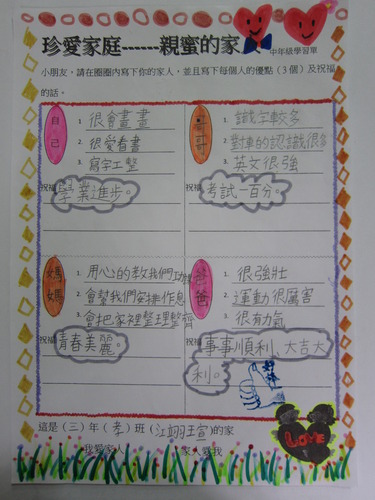 珍愛家庭------親蜜的家
中年級學習單
小朋友，請在圈圈內寫下你的家人，並且寫下每個人的優點（3個）及祝福
的話。
自己
1. 很會畫畫
2. 很愛看書
3. 寫字工整
祝福 學業進步。
哥哥
1. 識字較多
2. 對車的認識很多
3. 英文很強
祝福 考試一百分。
媽媽
1. 用心的教我們功課
2. 會幫我們安排作息
3. 會把家裡整理整齊
祝福 青春美麗。
爸爸
1. 很強壯
2. 運動很厲害
3. 很有力氣
祝福 事事順利、大吉大
利。
好棒
LOVE
這是（三）年（孝）班（江翊瑄）的家
我愛家人
家人愛我